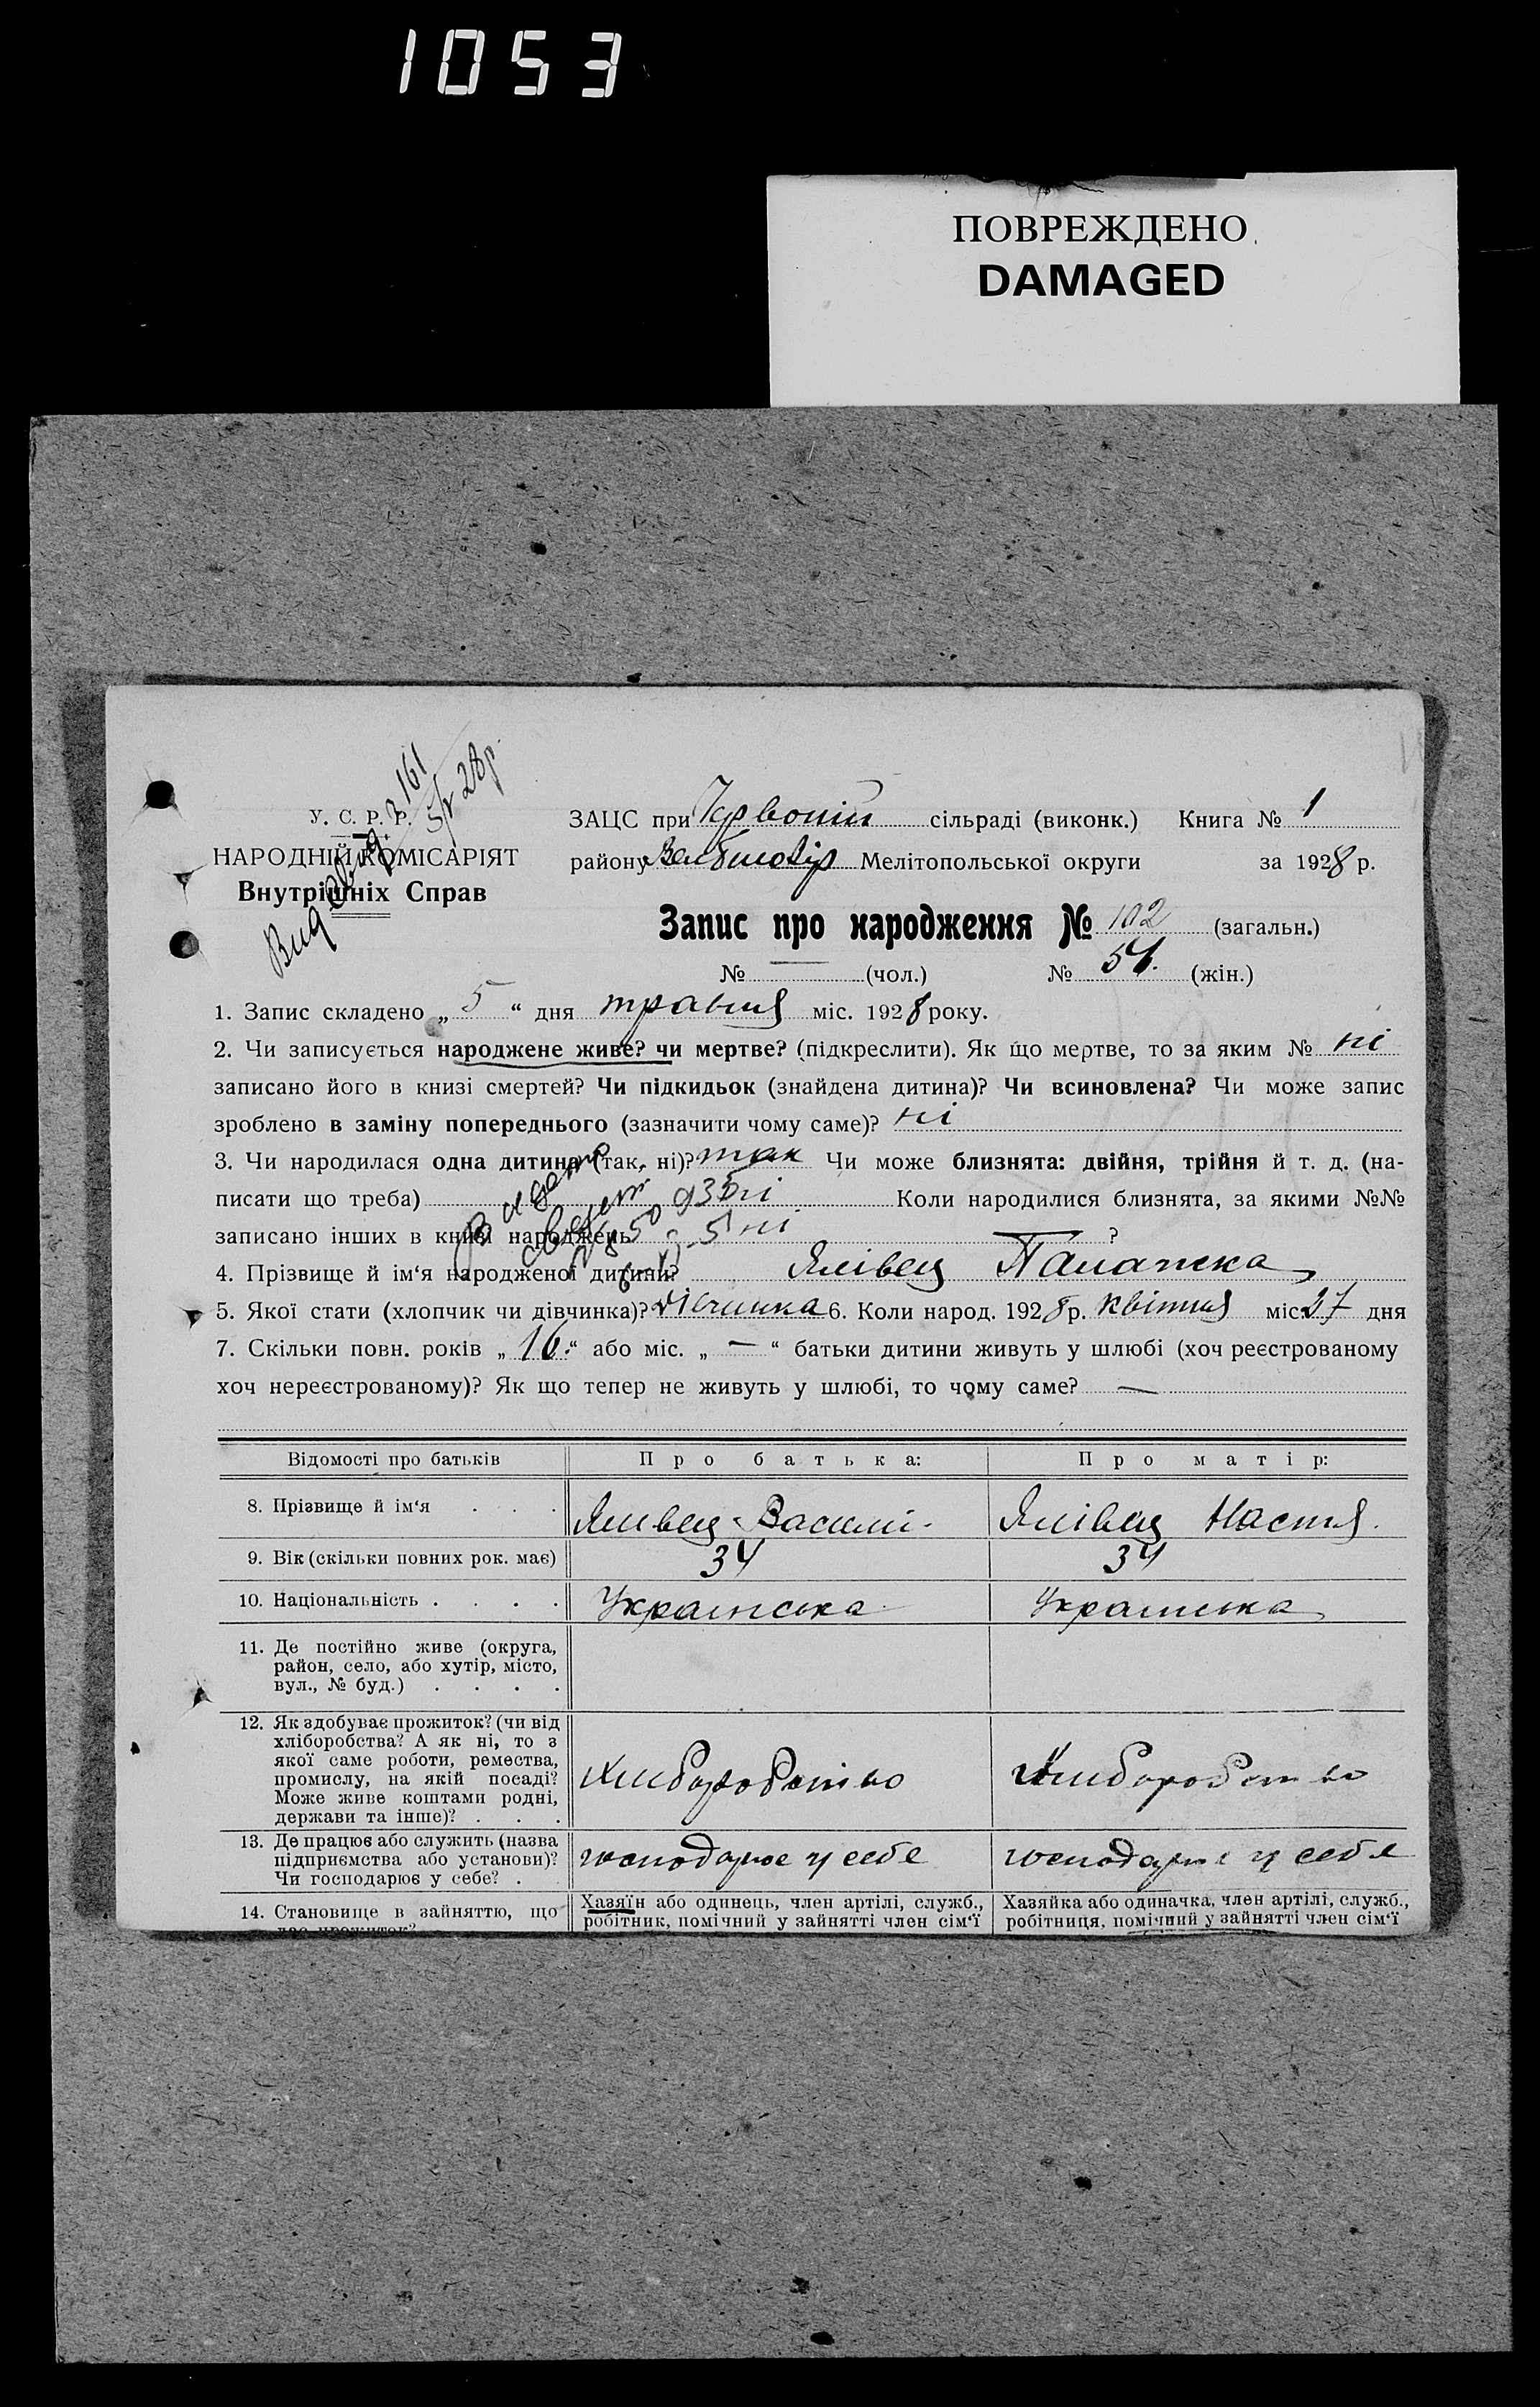 1053
ПОВРЕЖДЕНО
DAMAGED
У. С. Р. Р.
НАРОДНІЙ КОМІСАРІЯТ
Внутрішніх Справ
161
5/V 28р.
ЗАЦС при сільраді (виконк.) Книга № 1
району Мелітопольської округи за 1928 р.
Запис про народження № 102 (загальн.)
№ — (чол.) № 54. (жін.)
1. Запис складено „ 5 “ дня травня міс. 1928 року.
2. Чи записується народжене живе? чи мертве? (підкреслити). Як що мертве, то за яким № ні
записано його в книзі смертей? Чи підкидьок (знайдена дитина)? Чи всиновлена? Чи може запис
зроблено в заміну попереднього (зазначити чому саме)? ні
3. Чи народилася одна дитина (так, ні)? так Чи може близнята: двійня, трійня й т. д. (на-
писати що треба) ні Коли народилися близнята, за якими №№
записано інших в книзі народжень ні ?
4. Прізвище й ім‘я народженої дитини? Ялівец Палажка
5. Якої стати (хлопчик чи дівчинка)? дівчинка 6. Коли народ. 1928 р. квітня міс. 27 дня
7. Скільки повн. років „ 16. “ або міс. „ — “ батьки дитини живуть у шлюбі (хоч реєстрованому
хоч нереєстрованому)? Як що тепер не живуть у шлюбі, то чому саме? —
Відомості про батьків Про батька: Про матір:
8. Прізвище й ім‘я . . . Ялівец Василі Ялівец Настя.
9. Вік (скільки повних рок. має) 34 34
10. Національність . . . . Українська Українська
11. Де постійно живе (округа,
район, село, або хутір, місто,
вул., № буд.) . . . .
12. Як здобуває прожиток? (чи від
хліборобства? А як ні, то з
якої саме роботи, ремества,
промислу, на якій посаді?
Може живе коштами родні,
держави та інше)? . . .
хліборобство хліборобство
13. Де працює або служить (назва
підприємства або установи)?
Чи господарює у себе? .
господарює у себе господарює у себе
14. Становище в зайняттю, що
дає прожиток?
Хазяїн або одинець, член артілі, служб.,
робітник, помічний у зайнятті член сім‘ї
Хазяйка або одиначка, член артілі, служб.,
робітниця, помічний у зайнятті член сім‘ї